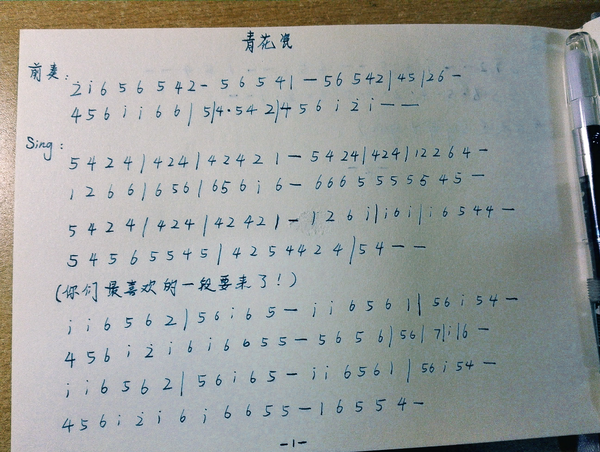 青花瓷
前奏: 2 i 6 5 6 5 4 2 - 5 6 5 4 1 — 5 6 5 4 2 | 4 5 | 2 6 —
4 5 6 i i 6 6 | 5 | 4 · 5 4 2 | 4 5 6 i 2 i — —
Sing: 5 4 2 4 | 4 2 4 | 4 2 4 2 1 — 5 4 2 4 | 4 2 4 | 1 2 2 6 4 —
1 2 6 6 | 6 5 6 | 6 5 6 i 6 — 6 6 6 5 5 5 5 4 5 —
5 4 2 4 | 4 2 4 | 4 2 4 2 1 — 1 2 6 i | i 6 i | i 6 5 4 4 —
5 4 5 6 5 5 4 5 | 4 2 5 4 4 2 4 | 5 4 — —
(你们最喜欢的一段要来了!)
i i 6 5 6 2 | 5 6 i 6 5 — i i 6 5 6 1 | 5 6 i 5 4 —
4 5 6 i 2 i 6 i 6 6 5 5 — 5 6 5 6 | 5 6 | 7 | i | 6 —
i i 6 5 6 2 | 5 6 i 6 5 — i i 6 5 6 1 | 5 6 i 5 4 —
4 5 6 i 2 i 6 i 6 6 5 5 — 1 6 5 5 4 —
-1-